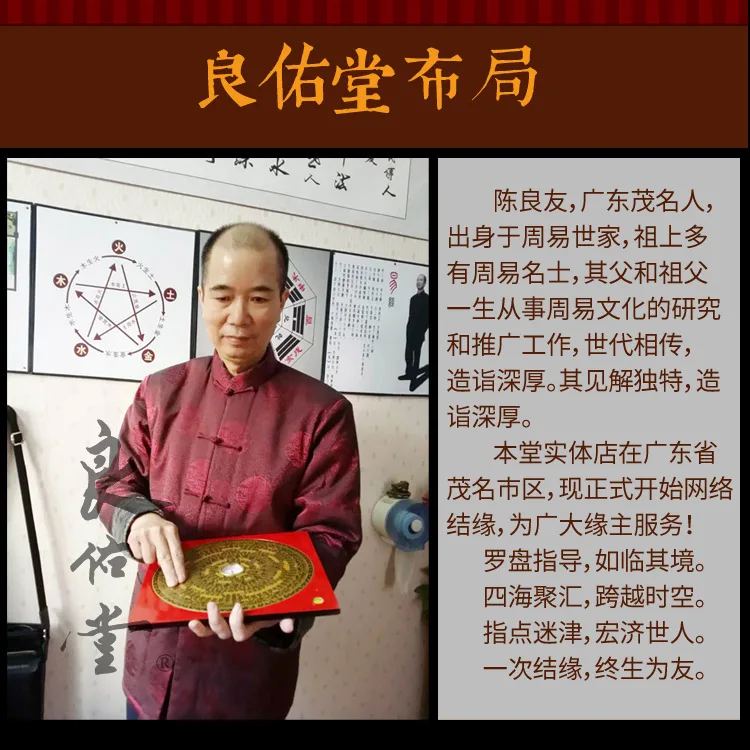 良佑堂布局
陈良友，广东茂名人，
出身于周易世家，祖上多
有周易名士，其父和祖父
一生从事周易文化的研究
和推广工作，世代相传，
造诣深厚。其见解独特，造
诣深厚。
本堂实体店在广东省
茂名市区，现正式开始网络
结缘，为广大缘主服务！
罗盘指导，如临其境。
四海聚汇，跨越时空。
指点迷津，宏济世人。
一次结缘，终生为友。
火
木
土
水
金
易
良佑堂®